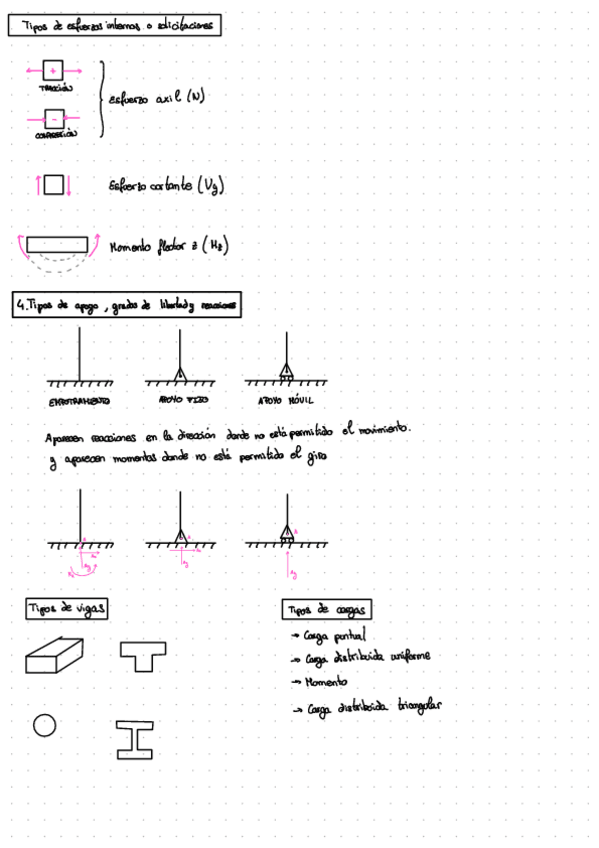 Tipos de esfuerzos internos o solicitaciones
+
TRACCIÓN
Esfuerzo axil (N)
-
COMPRESIÓN
Esfuerzo cortante (Vy)
Momento flector z (Mz)
4. Tipos de apoyo, grados de libertad y reacciones
EMPOTRAMIENTO APOYO FIJO APOYO MÓVIL
Aparecen reacciones en la dirección donde no está permitido el movimiento.
y aparecen momentos donde no está permitido el giro
Tipos de vigas
Tipos de cargas
→ Carga puntual
→ Carga distribuida uniforme
→ Momento
→ Carga distribuida triangular